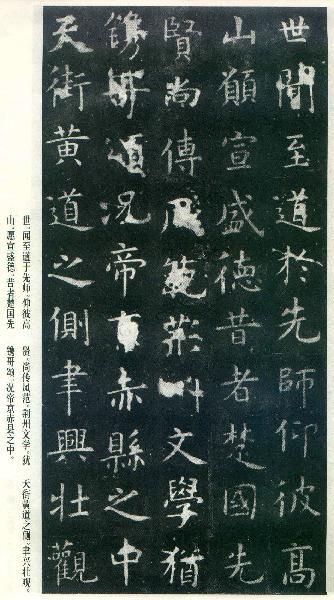 世聞至道於先師仰彼高
山願宣盛德昔者楚國先
賢尚傳風範荊州文學猶
鐫哥頌況帝京赤縣之中
天街黃道之側聿興壯觀
世，闻至道于先师，仰彼高
山，愿宣盛德。昔者楚国先
贤，尚传风范，荆州文学，犹
镌哥颂，况帝京赤县之中。
天街黄道之侧，聿兴壮观。